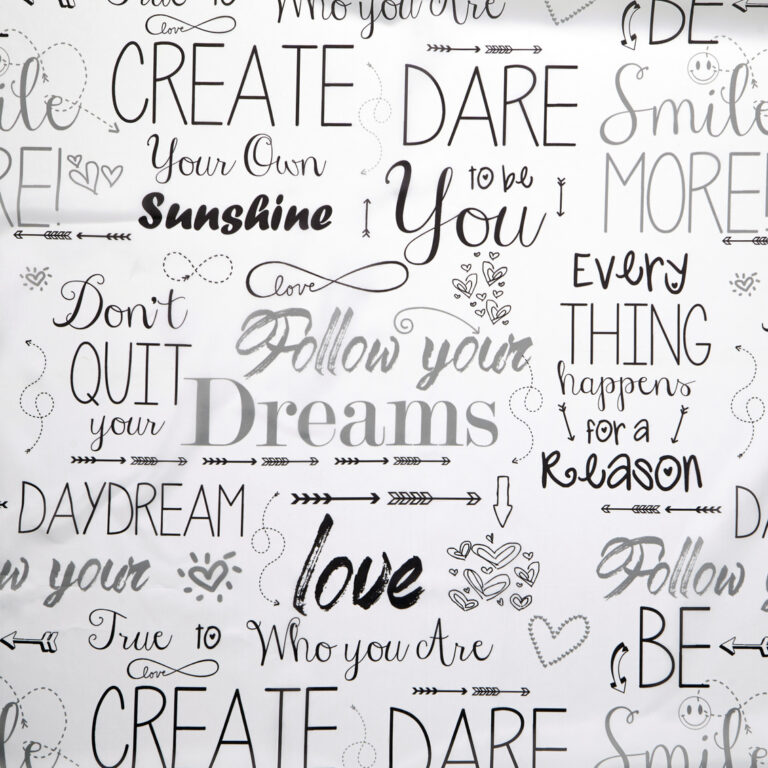 True to Who you Are
love
BE
CREATE
Your Own
Sunshine
DARE
to be
You
Smile
MORE!
ile
RE!
Don't
QUIT
your
love
Follow your
Dreams
Every
THING
happens
for a
Reason
DAYDREAM
love
DA
w your
Follow
True to Who you Are
BE
love
CREATE
DARE
Smile